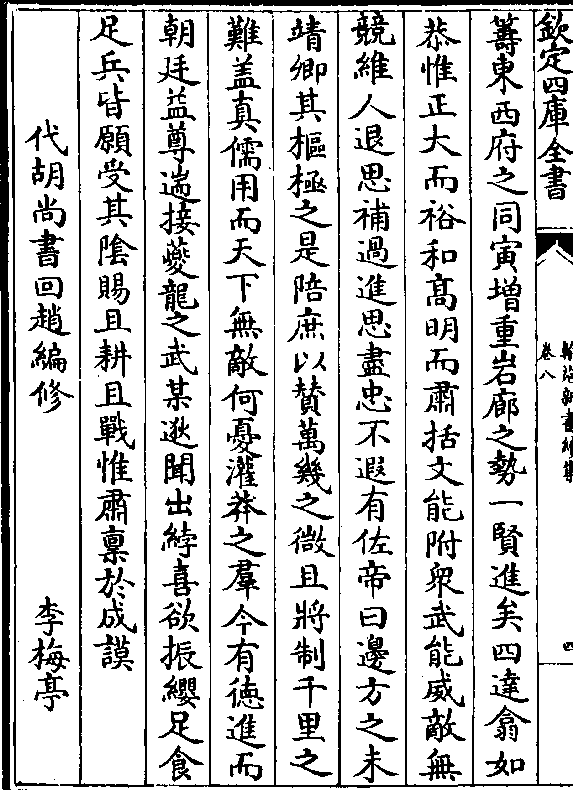 欽定四庫全書
卷八
四
籌東西府之同寅增重岩廊之勢一賢進矣四達翕如
恭惟正大而裕和髙明而肅括文能附衆武能威敵無
競維人退思補過進思盡忠不遐有佐帝曰邊方之未
靖卿其樞極之是陪庶以賛萬幾之微且將制千里之
難盖真儒用而天下無敵何憂灌莽之羣今有徳進而
朝廷益尊遄接夔龍之武某逖聞出綍喜欲振纓足食
足兵皆願受其隂賜且耕且戰惟肅禀於成謨
代胡尚書回趙編修 李梅亭